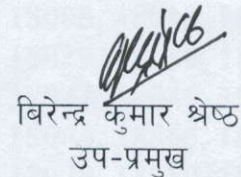 बिरेन्द्र कुमार श्रेष्ठ
उप-प्रमुख